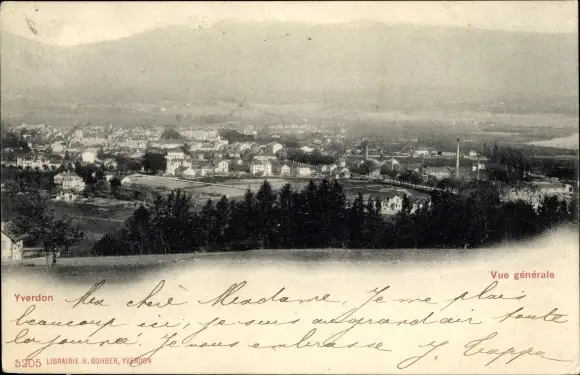 Vue générale
Yverdon
Ma chère Madame, Je me plais
beaucoup ici, je suis au grand air toute
la journée. Je vous embrasse. J. Zappa
5205 LIBRAIRIE H. BOHRER, YVERDON